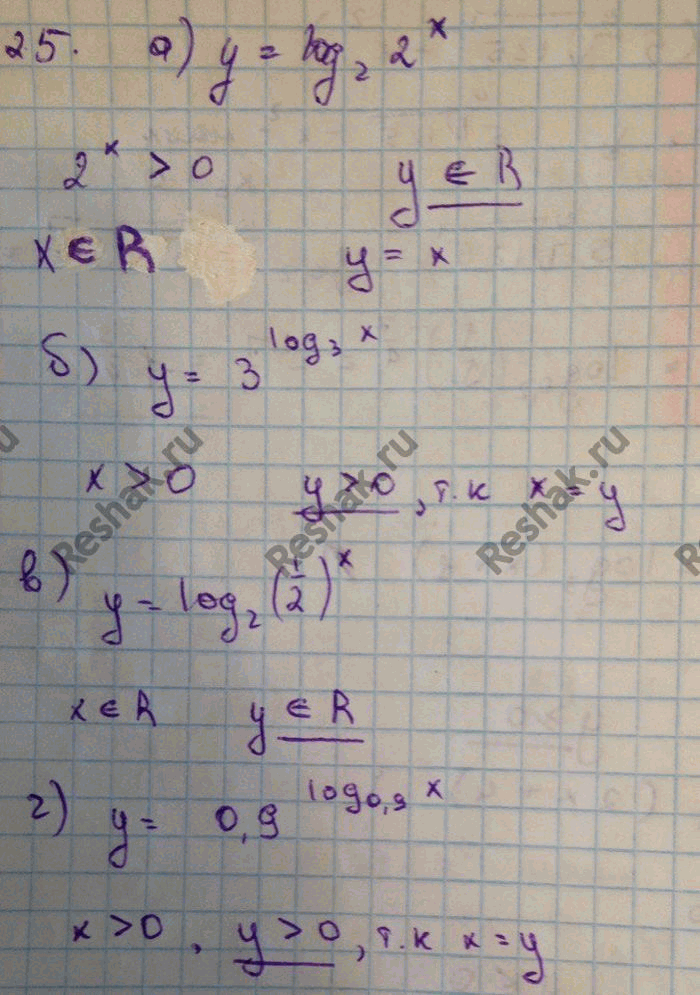 25. а) y = log₂ 2ˣ
2ˣ > 0 y ∈ R
x ∈ R y = x
б) y = 3^(log₃ x)
x > 0 y > 0, т.к x = y
Reshak.ru Reshak.ru Reshak.ru
в) y = log₂ (1/2)ˣ
x ∈ R y ∈ R
г) y = 0,9^(log₀,₉ x)
x > 0, y > 0, т.к x = y